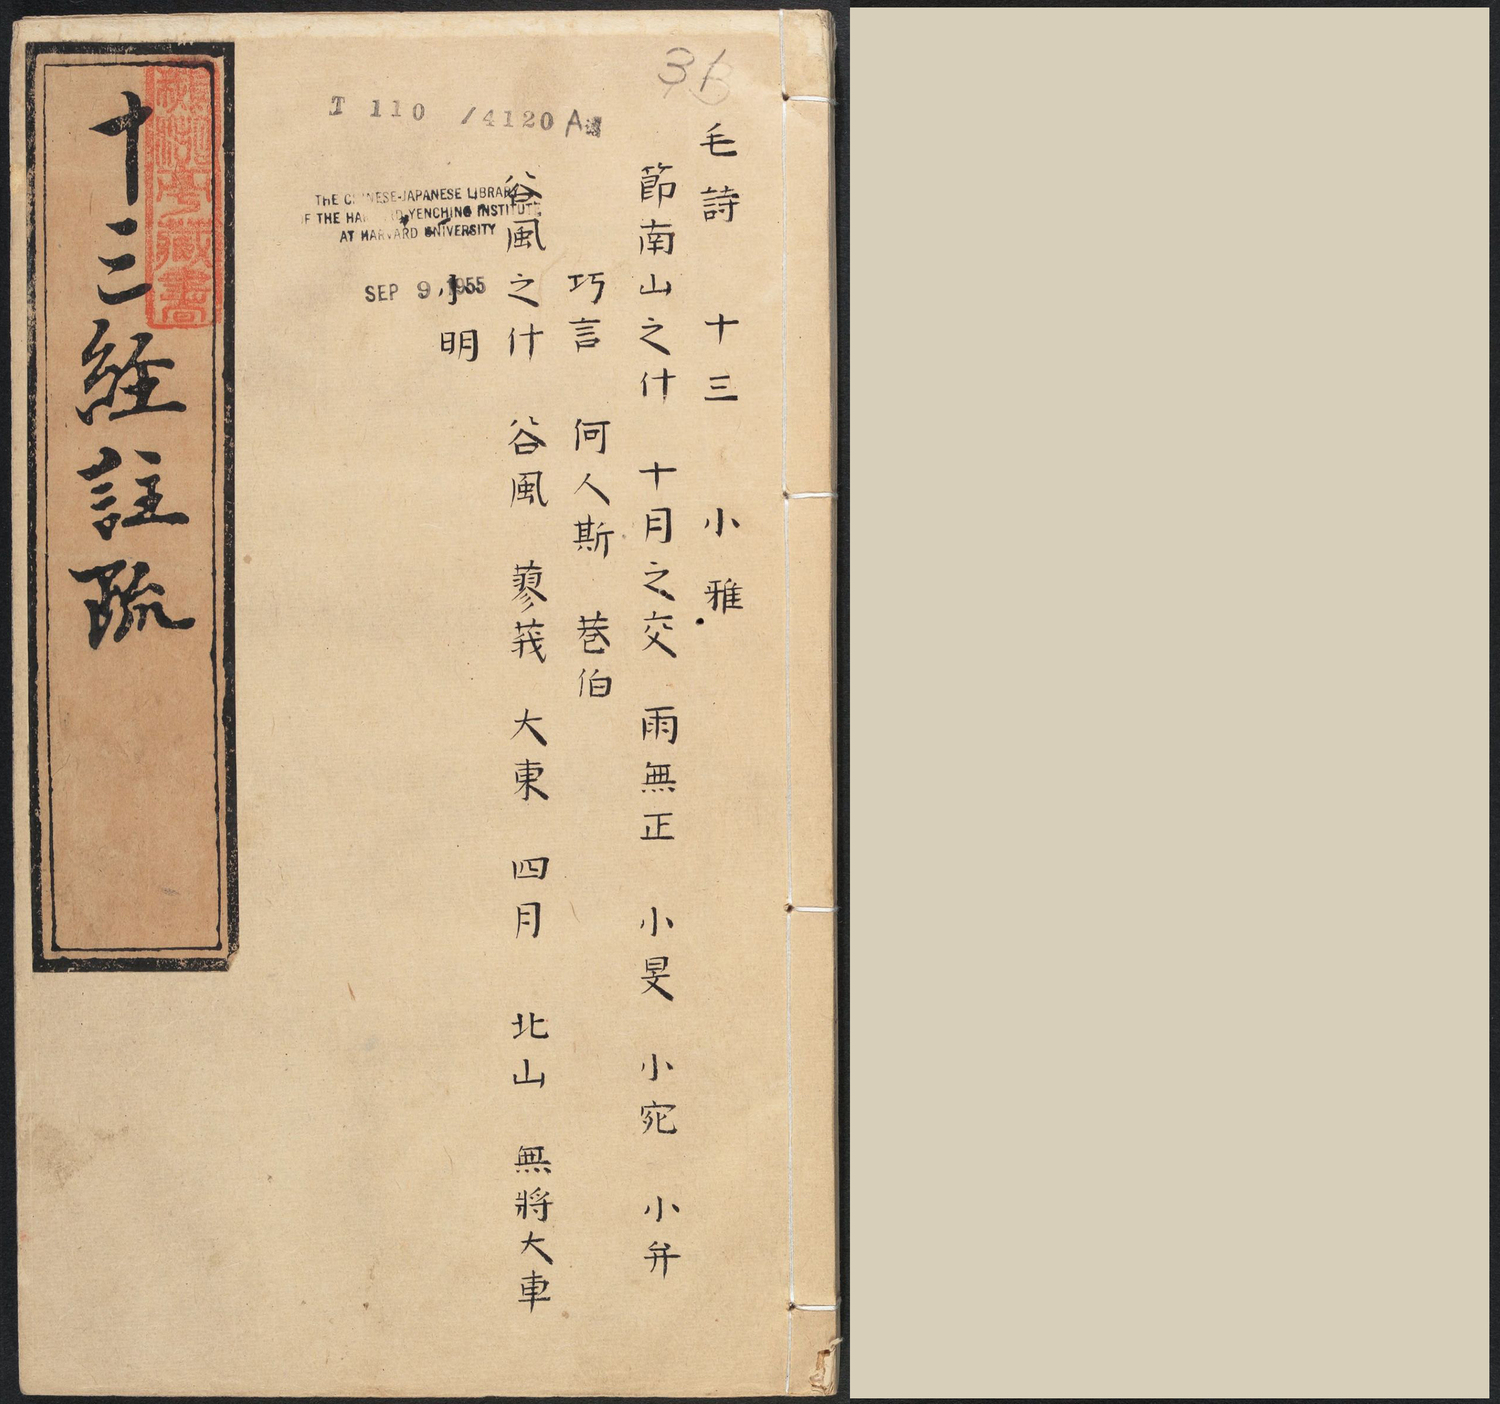 毛詩 十三 小雅
節南山之什 十月之交 雨無正 小旻 小宛 小弁
巧言 何人斯 巷伯
谷風之什 谷風 蓼莪 大東 四月 北山 無將大車
小明
十三經註疏
T 110 /4120 A
THE CHINESE-JAPANESE LIBRARY
OF THE HARVARD-YENCHING INSTITUTE
AT HARVARD UNIVERSITY
SEP 9 1955